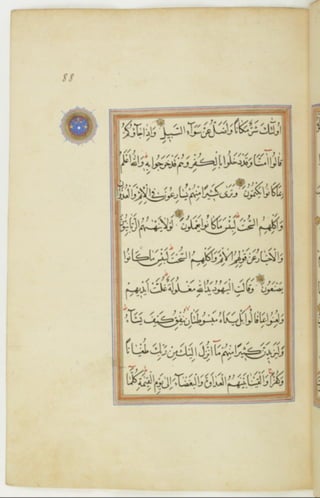 88
اُولٰئِكَ شَرٌّ مَكَانًا وَاَضَلُّ عَنْ سَوَاءِ السَّبِيلِ وَاِذَا جَاؤُكُمْ
قَالُوا اٰمَنَّا وَقَدْ دَخَلُوا بِالْكُفْرِ وَهُمْ قَدْ خَرَجُوا بِهِ وَاللّٰهُ اَعْلَمُ
بِمَا كَانُوا يَكْتُمُونَ وَتَرٰى كَثِيرًا مِنْهُمْ يُسَارِعُونَ فِي الْاِثْمِ وَالْعُدْوَانِ
وَاَكْلِهِمُ السُّحْتَ لَبِئْسَ مَا كَانُوا يَعْمَلُونَ لَوْلَا يَنْهٰيهُمُ الرَّبَّانِيُّونَ
وَالْاَحْبَارُ عَنْ قَوْلِهِمُ الْاِثْمَ وَاَكْلِهِمُ السُّحْتَ لَبِئْسَ مَا كَانُوا
يَصْنَعُونَ وَقَالَتِ الْيَهُودُ يَدُ اللّٰهِ مَغْلُولَةٌ غُلَّتْ اَيْدِيهِمْ
وَلُعِنُوا بِمَا قَالُوا بَلْ يَدَاهُ مَبْسُوطَتَانِ يُنْفِقُ كَيْفَ يَشَاءُ
وَلَيَزِيدَنَّ كَثِيرًا مِنْهُمْ مَا اُنْزِلَ اِلَيْكَ مِنْ رَبِّكَ طُغْيَانًا
وَكُفْرًا وَاَلْقَيْنَا بَيْنَهُمُ الْعَدَاوَةَ وَالْبَغْضَاءَ اِلٰى يَوْمِ الْقِيٰمَةِ كُلَّمَا